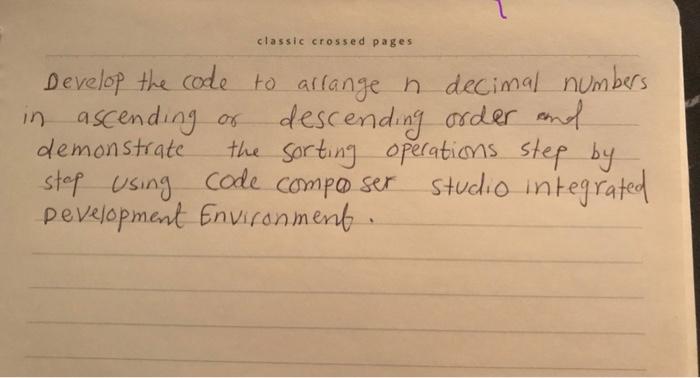 classic crossed pages
Develop the code to arrange n decimal numbers
in ascending or descending order and
demonstrate the sorting operations step by
step using code composer studio integrated
Development Environment.